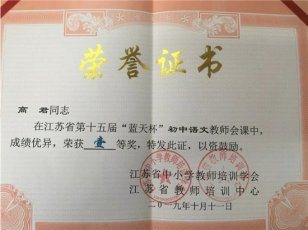 荣誉证书
高 君同志
在江苏省第十五届“蓝天杯”初中语文教师会课中，
成绩优异，荣获 壹 等奖，特发此证，以资鼓励。
江苏省中小学教师培训学会
江苏省教师培训中心
二〇一九年十月十一日